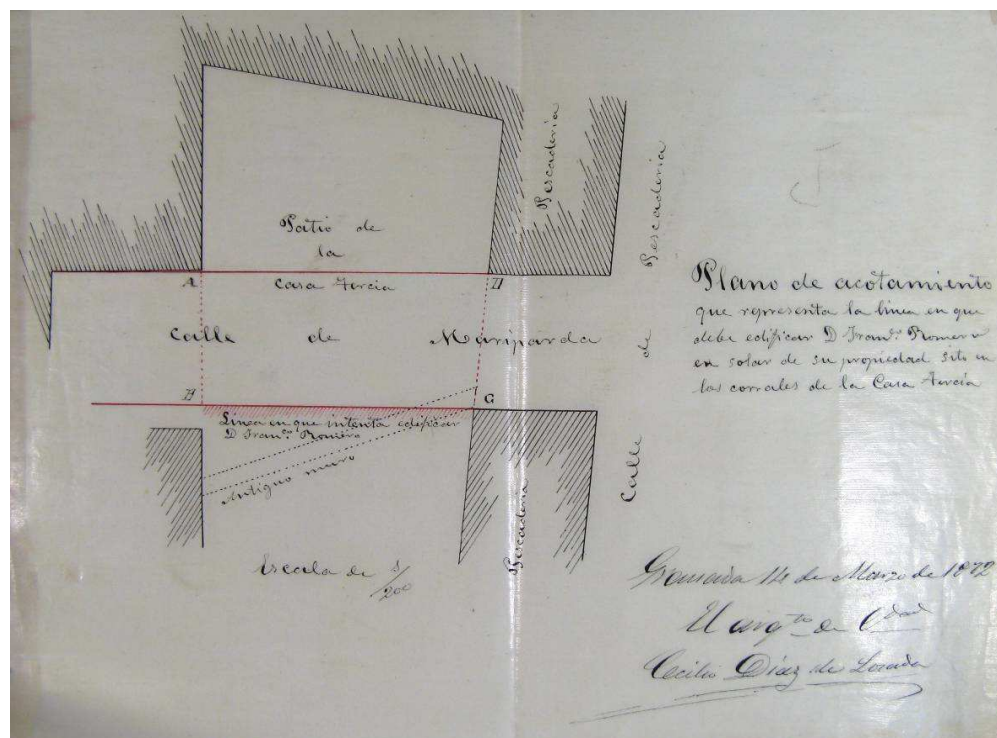 Patio de
la
Casa Tercia
A
D
Calle de Mariparda
B
G
Linea en que intenta edificar
D Fran.co Romero
Antiguo muro
Escala de 1/200
Pescaderia
Pescaderia
Calle de Pescaderia
Plano de acotamiento
que representa la linea en que
debe edificar D Fran.co Romero
en solar de su propiedad sito en
los corrales de la Casa Tercia
Granada 14 de Marzo de 1872
El arq.to de C.dad
Cecilio Diaz de Losada